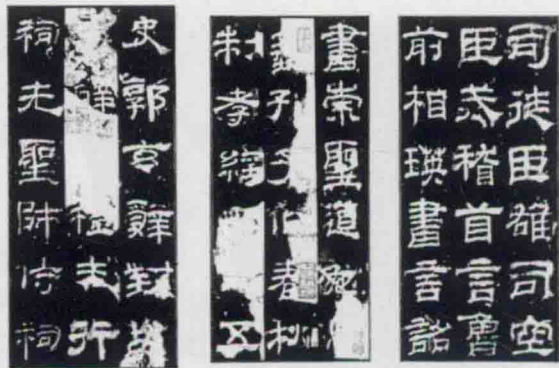 司徒臣雄司空
臣戒稽首言魯
前相瑛書言詔
書崇聖道勉
孔子作春秋
制孝經五
史郭玄辭對故
辟禮未行
祠先聖師侍祠